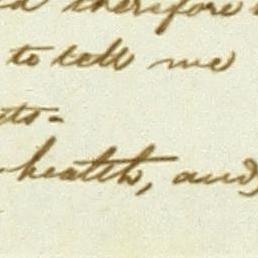 therefore
to tell me
ts-
health, and